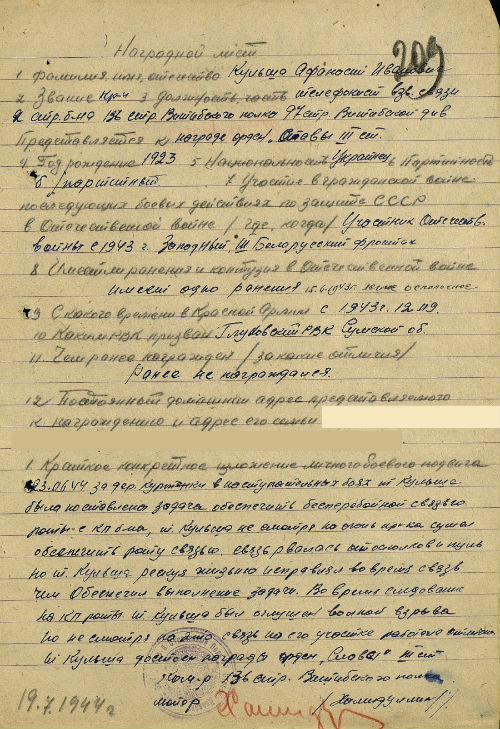 Наградной лист
209
1 Фамилия, имя, отчество Кульша Афанасий Иванович
2 Звание кр-ц 3 Должность, часть телефонист взв. связи
2 стр. б-на 136 стр. Витебского полка 97 стр. Витебской див
Представляется к награде орден „Славы" III ст.
4 Год рождение 1923 5 Национальность Украинец 6 Партийность
б/партийный 7 Участие в гражданской войне
последующих боевых действиях по защите СССР
в Отечественной войне /где, когда/ Участник Отечеств.
войны с 1943 г. Западный, III Белорусский фронт
8 Имеет ли ранения и контузия в Отечественной войне
имеет одно ранения 15.9.1943г.
9 С какого времени в Красной Армии с 1943г. 12 09.
10 Каким РВК призван Глуховский РВК Сумской об.
11 Чем ранее награжден /за какие отличия/
Ранее не награждался.
12 Постоянный домашний адрес представляемого
к награждению и адрес его семьи
1 Краткое конкретное изложение личного боевого подвига
23.06.44 за дер. в наступательных боях т. Кульше
была поставлена задача обеспечить бесперебойной связью
роты с КП б-на, т. Кульша не смотря на огонь пр-ка сумел
обеспечить роту связью. связь рвалась от осколков и пуль
но т. Кульша рескуя жизнью исправлял во время связь
чем Обеспечил выполнение задачи. Во время следование
на КП роты т Кульша был оглушен волной взрыва
но не смотря на это связь на его участке работала отлично
т Кульша достоен награды орден „Славы" III ст
Ком-р 136 стр. Витебского полка
майор /Халидуллин/
19.7.1944г